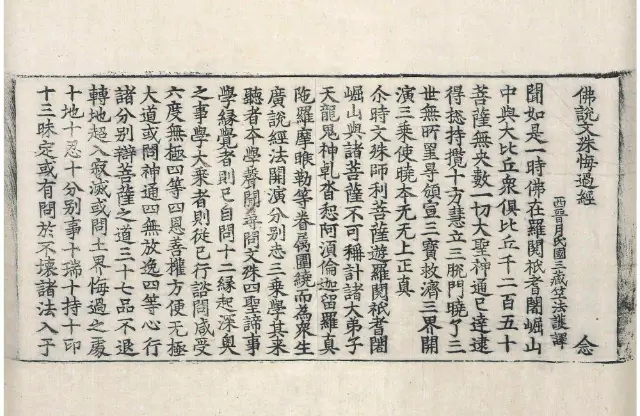 佛說文殊悔過經
西晉月氏國三藏竺法護譯 念
聞如是一時佛在羅閱祇耆闍崛山
中與大比丘衆俱比丘千二百五十
菩薩無央數一切大聖神通已達逮
得捴持攬十方慧立三脫門曉了三
世無所罣㝵頒宣三寶救濟三界開
演三乘使曉本无无上正真
尒時文殊師利菩薩遊羅閱祇耆闍
崛山與諸菩薩不可稱計諸大弟子
天龍鬼神乹沓惒阿湏倫迦留羅真
陁羅摩睺勒等眷屬圍繞而為衆生
廣說經法開演分別志三乘學其来
聽者本學聲聞尋問文殊四聖諦事
學緣覺者則已自問十二緣起深奧
之事學大乘者則從已行諮問咸受
六度無極四等四恩善權方便无極
大道或問神通四無放逸四等心行
諸分別辯菩薩之道三十七品不退
轉地超入寂滅或問土界悔過之處
十地十忍十分別事十瑞十持十印
十三昧定或有問於不壞諸法入于